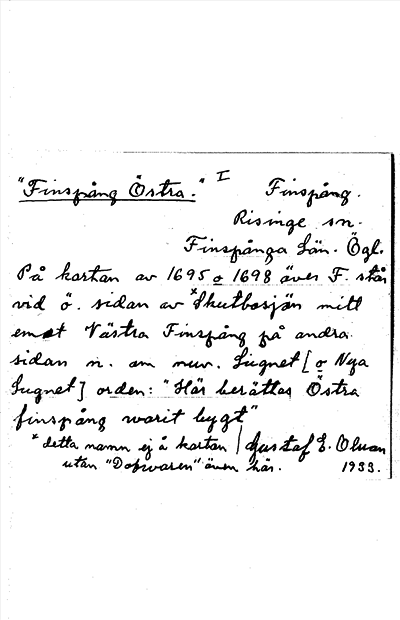 "Finspång Östra." I Finspång.
Risinge sn.
Finspånga län. Ögl.
På kartan av 1695 o 1698 över F. står
vid ö. sidan av *Skutbosjön mitt
emot Västra Finspång på andra
sidan n. om nuv. Lugnet [o Nya
Lugnet] orden: "Här berättas Östra
finspång warit bygt"
* detta namn ej å kartan | Gustaf E. Olsson
utan "Dofwaren" även här. 1933.